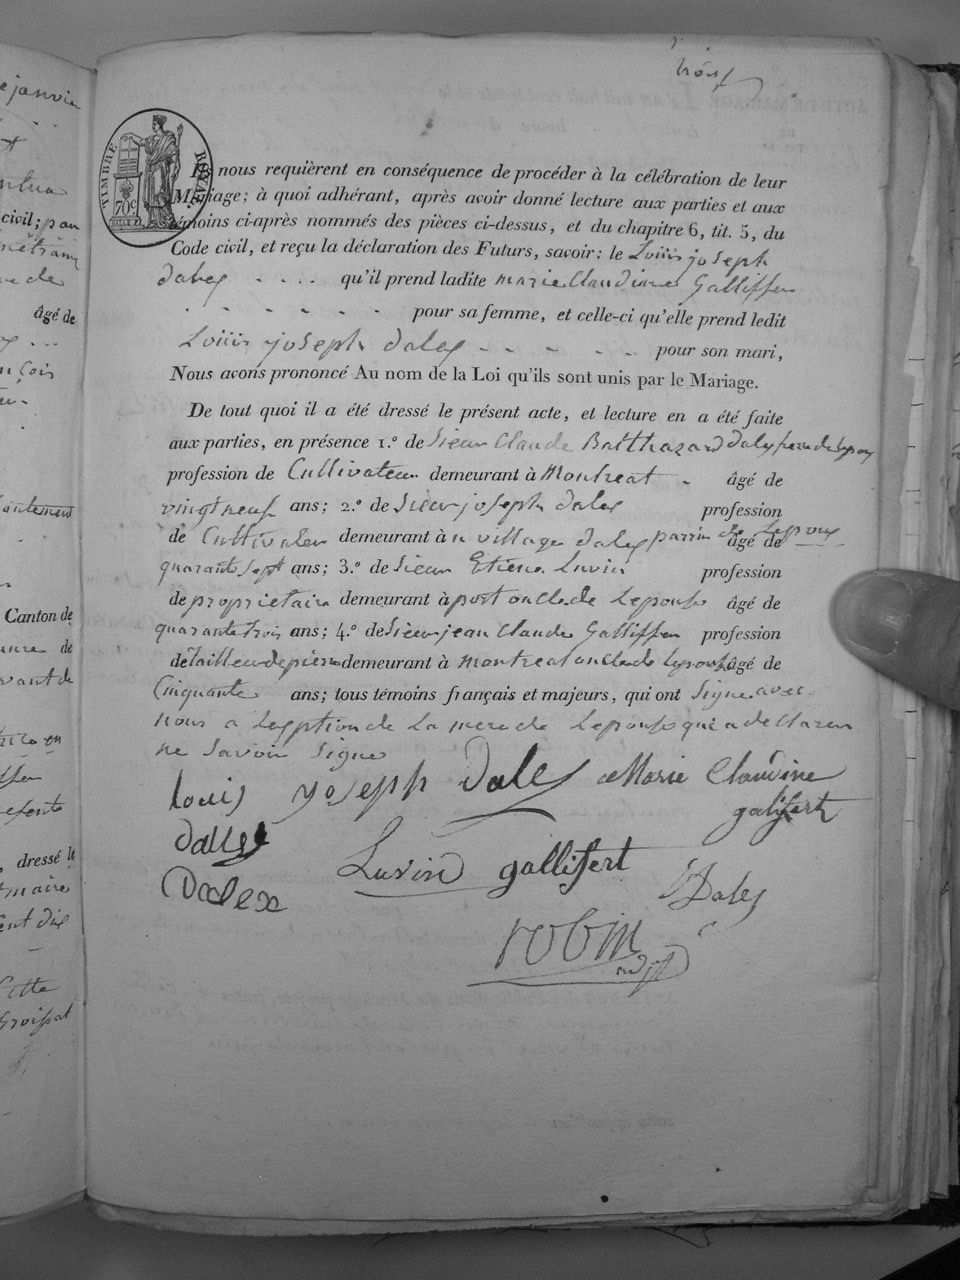 trois
TIMBRE ROYAL
70c
Ils nous requièrent en conséquence de procéder à la célébration de leur
Mariage; à quoi adhérant, après avoir donné lecture aux parties et aux
témoins ci-après nommés des pièces ci-dessus, et du chapitre 6, tit. 5, du
Code civil, et reçu la déclaration des Futurs, savoir: le Louis joseph
dalex . . . . qu'il prend ladite marie Claudine Galliffer
- - - - - - pour sa femme, et celle-ci qu'elle prend ledit
Louis joseph dalex - - - - - pour son mari,
Nous avons prononcé Au nom de la Loi qu'ils sont unis par le Mariage.
De tout quoi il a été dressé le présent acte, et lecture en a été faite
aux parties, en présence 1.º de Sieur Claude Balthazard dalex frere de lepoux
profession de Cultivateur demeurant à Montreat - âgé de
vingt neuf ans; 2.º de Sieur joseph dalex profession
de Cultivateur demeurant à u village dalex parrin de Lepoux âgé de
quarante sept ans; 3.º de Sieur Etiene Luvin profession
de proprietaire demeurant à port oncle de Lepouse âgé de
quarante trois ans; 4.º de Sieur jean Claude Galliffer profession
de tailleur de pierre demeurant à montreat oncle de lepouse âgé de
Cinquante ans; tous témoins français et majeurs, qui ont Signe avec
nous a lexeption de La mere de Lepouse qui a declaren
ne Savoir Signe
louis joseph Dalex Marie Claudine
galifert
Dallex
Luvin gallifert
Dalex
Dalex
robin
adjt
e janvier
civil; par
âgé de
Canton de
de
vant de
en
dressé le
maire
cent dix
Cette
Groissat